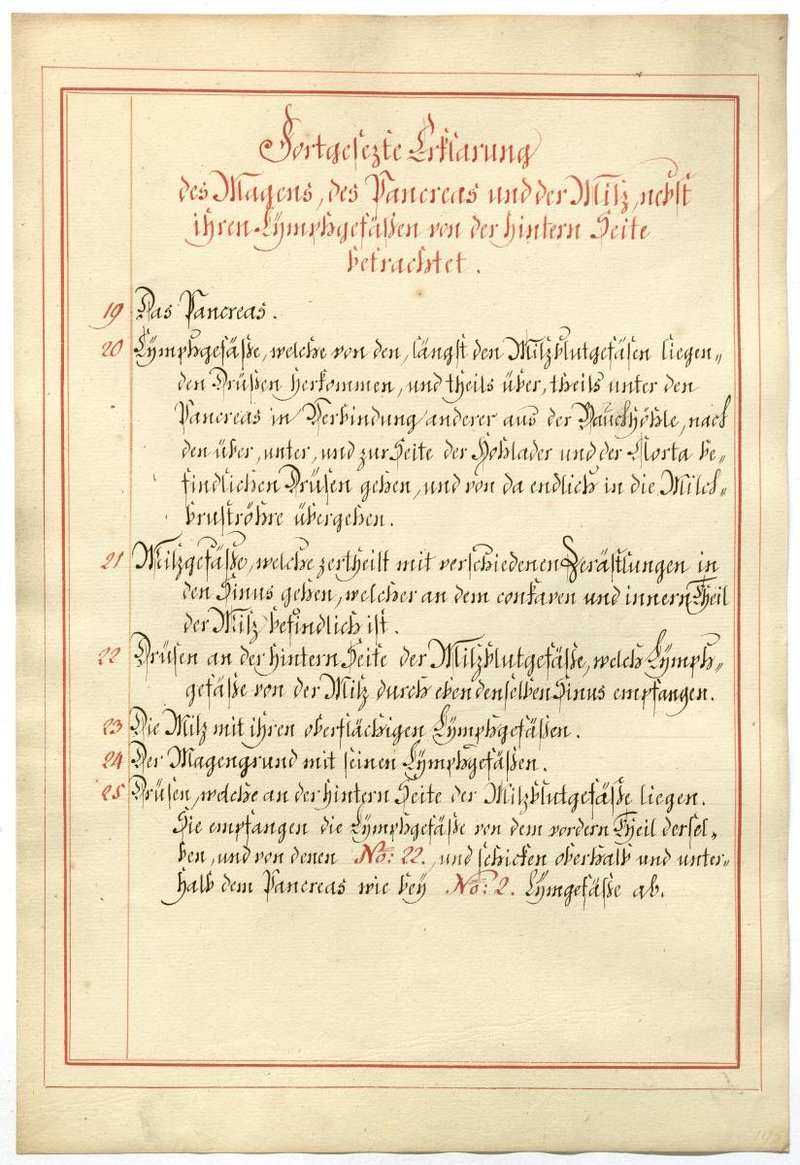 Fortgesezte Erklärung
des Magens, des Pancreas und der Milz, nebst
ihren Lÿmphgefässen von der hintern Seite
betrachtet.
19 Das Pancreas.
20 Lÿmphgefäße, welche von den, längst den Milzblutgefäsen liegen„
den Drüßen herkommen, und theils über, theils unter den
Pancreas in Verbindung anderer aus der Bauchhöhle, nach
den über, unter, und zur Seite der Hohlader und der Aorta be„
findlichen Drüsen gehen, und von da endlich in die Milch„
bruströhre übergehen.
21 Milzgefäße, welche zertheilt mit verschiedenen Zerästlungen in
den Sinus gehen, welcher an dem conkaven und innern Theil
der Milz befindlich ist.
22 Drüsen an der hintern Seite der Milzblutgefäße, welch Lÿmph„
gefäße von der Milz durch eben denselben Sinus empfangen.
23 Die Milz mit ihren oberflächigen Lÿmphgefäßen.
24 Der Magengrund mit seinen Lÿmphgefäßen.
25 Drüsen, welche an der hintern Seite der Milzblutgefäße liegen.
Sie empfangen die Lÿmphgefäße von dem vordern Theil dersel„
ben, und von denen No: 22. und schicken oberhalb und unter„
halb dem Pancreas wie beÿ No: 2. Lÿmgefäße ab.